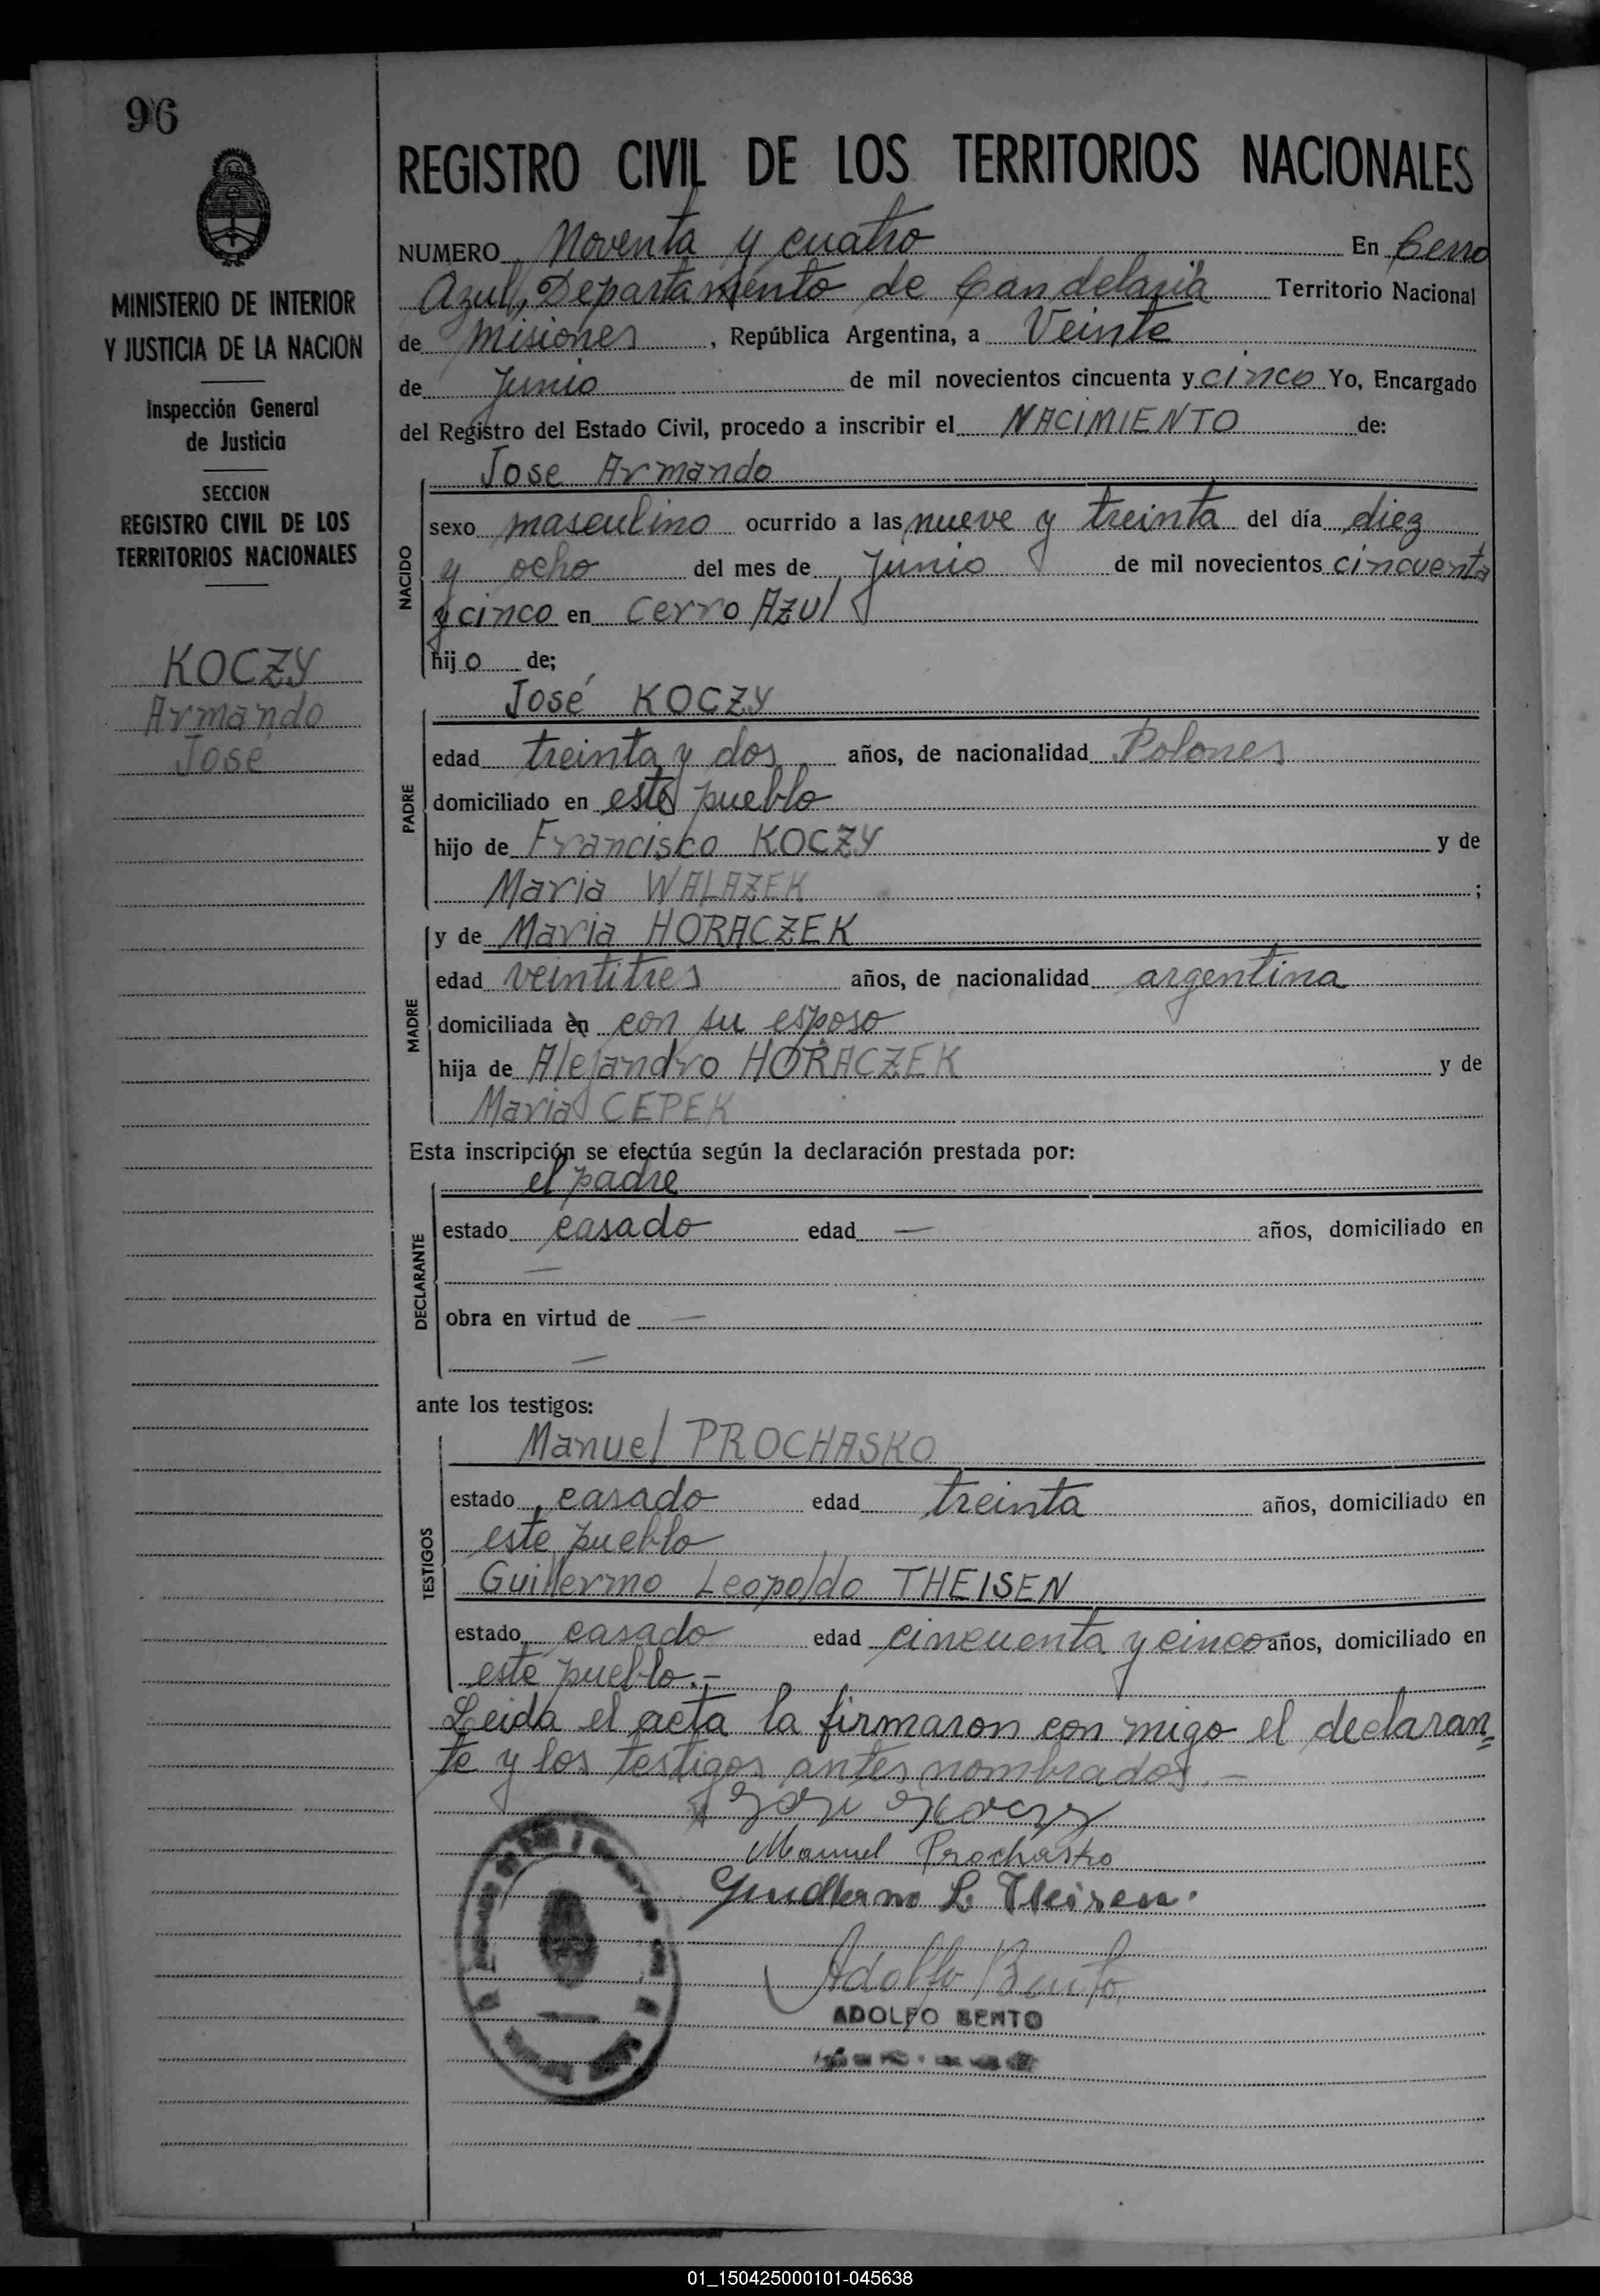 96
MINISTERIO DE INTERIOR
Y JUSTICIA DE LA NACION
Inspección General
de Justicia
SECCION
REGISTRO CIVIL DE LOS
TERRITORIOS NACIONALES
KOCZY
Armando
José
REGISTRO CIVIL DE LOS TERRITORIOS NACIONALES
NUMERO Noventa y cuatro En Cerro
Azul, Departamento de Candelaria Territorio Nacional
de Misiones, República Argentina, a Veinte
de Junio de mil novecientos cincuenta y cinco Yo, Encargado
del Registro del Estado Civil, procedo a inscribir el NACIMIENTO de:
NACIDO
Jose Armando
sexo masculino ocurrido a las nueve y treinta del día diez
y ocho del mes de Junio de mil novecientos cincuenta
y cinco en Cerro Azul
hijo de;
PADRE
José KOCZY
edad treinta y dos años, de nacionalidad Polones
domiciliado en este pueblo
hijo de Francisco KOCZY y de
Maria WALAZEK ;
MADRE
y de Maria HORACZEK
edad veintitres años, de nacionalidad argentina
domiciliada en con su esposo
hija de Alejandro HORACZEK y de
Maria CEPEK
Esta inscripción se efectúa según la declaración prestada por:
DECLARANTE
el padre
estado casado edad — años, domiciliado en
—
obra en virtud de —
—
ante los testigos:
TESTIGOS
Manuel PROCHASKO
estado casado edad treinta años, domiciliado en
este pueblo
Guillermo Leopoldo THEISEN
estado casado edad cincuenta y cinco años, domiciliado en
este pueblo.-
Leida el acta la firmaron con migo el declaran=
te y los testigos antes nombrados.-
Manuel Prochasko
Guillermo L. Theisen.
Adolfo Bento
ADOLFO BENTO
01_150425000101-045638